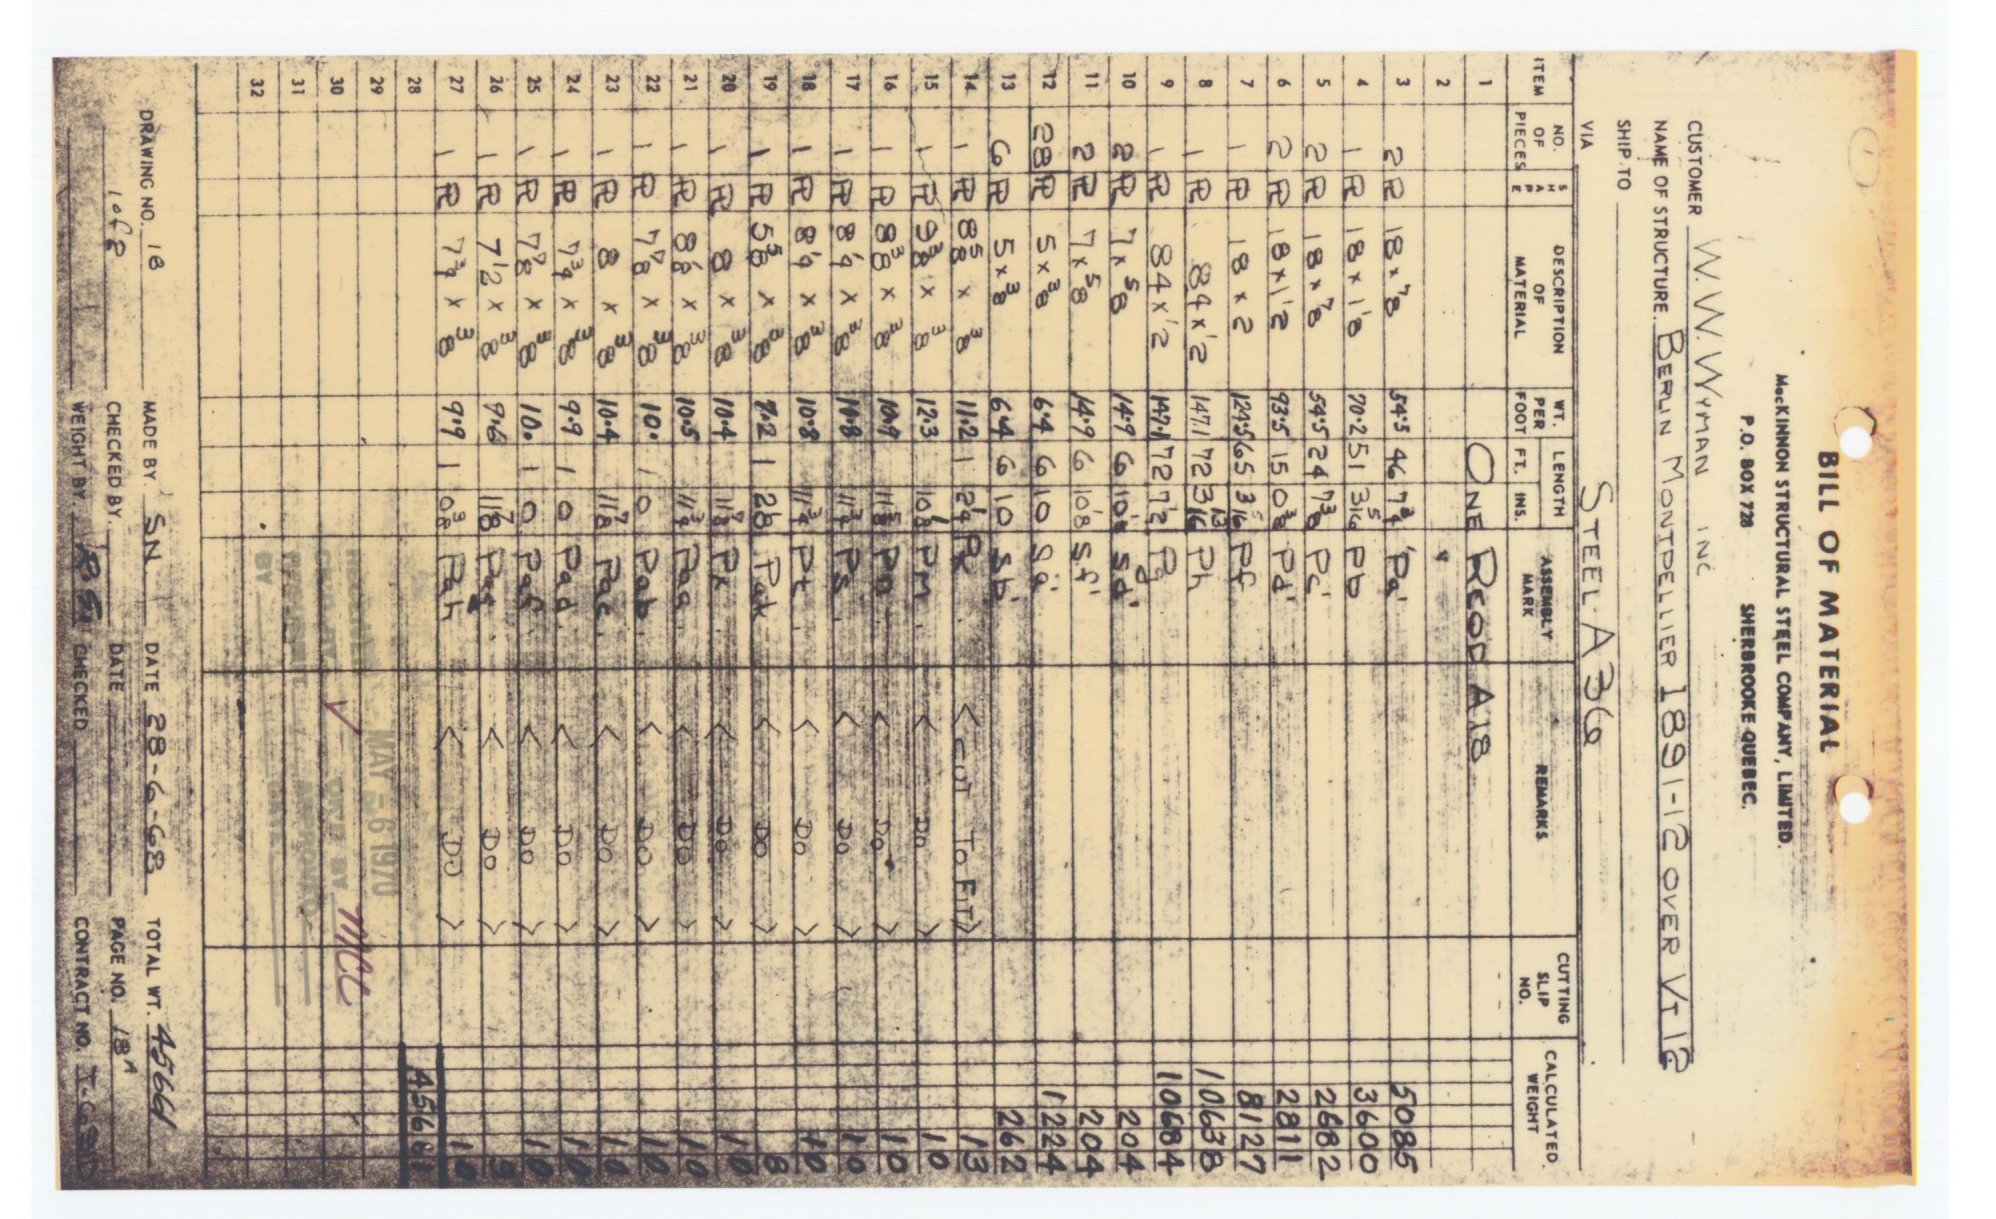 BILL OF MATERIAL
McKINNON STRUCTURAL STEEL COMPANY, LIMITED.
P.O. BOX 728 SHERBROOKE QUEBEC.
CUSTOMER W. W. WYMAN INC
NAME OF STRUCTURE. BERLIN MONTPELLIER 1891-12 OVER VT 12
SHIP TO
VIA STEEL A36
ITEM NO. OF PIECES SHAPE DESCRIPTION OF MATERIAL WT. PER FOOT LENGTH FT. INS. ASSEMBLY MARK REMARKS CUTTING SLIP NO. CALCULATED WEIGHT
1 ONE REQD A18
2
3 2 PL 18 x 7/8 54.5 46 7 3/4 Pa' 5085
4 1 PL 18 x 1 1/8 70.2 51 3 5/16 Pb 3600
5 2 PL 18 x 7/8 54.5 24 7 3/8 Pc' 2682
6 2 PL 18 x 1 1/2 93.5 15 0 3/8 Pd' 2811
7 1 PL 18 x 2 124.5 65 3 5/16 Pf 8127
8 1 PL 84 x 1/2 147.1 72 3 13/16 Ph 10638
9 1 PL 84 x 1/2 147.1 72 7 1/2 Pg 10684
10 2 PL 7 x 5/8 14.9 6 10 1/8 Sd' 204
11 2 PL 7 x 5/8 14.9 6 10 1/8 Sf' 204
12 28 PL 5 x 3/8 6.4 6 10 Sa' 1224
13 6 PL 5 x 3/8 6.4 6 10 Sb' 262
14 1 PL 8 5/8 x 3/8 11.2 1 2 1/4 Pk < CUT TO FIT > 13
15 1 PL 9 3/8 x 3/8 12.3 10 1/8 Pm < DO > 10
16 1 PL 8 3/8 x 3/8 10.9 11 5/8 Pp < DO > 10
17 1 PL 8 1/4 x 3/8 10.8 11 3/4 Ps < DO > 10
18 1 PL 8 1/4 x 3/8 10.8 11 3/4 Pt < DO > 10
19 1 PL 5 5/8 x 3/8 7.2 1 2 1/8 Pak < DO > 8
20 1 PL 8 x 3/8 10.4 11 7/8 Px < DO > 10
21 1 PL 8 1/8 x 3/8 10.5 11 3/4 Paa < DO > 10
22 1 PL 7 7/8 x 3/8 10. 1 0 Pab < DO > 10
23 1 PL 8 x 3/8 10.4 11 7/8 Pac < DO > 10
24 1 PL 7 3/4 x 3/8 9.9 1 0 Pad < DO > 10
25 1 PL 7 7/8 x 3/8 10. 1 0 Paf < DO > 10
26 1 PL 7 1/2 x 3/8 9.6 11 7/8 Pag < DO > 9
27 1 PL 7 3/4 x 3/8 9.9 1 0 3/8 Pah < DO > 10
28 45661
29
30
31
32
MAY -6 1970
MCC
BY
DRAWING NO. 18 MADE BY SN DATE 28-6-68 TOTAL WT. 45661
1 of 2 CHECKED BY. DATE PAGE NO. 18A
WEIGHT BY. CHECKED CONTRACT NO.